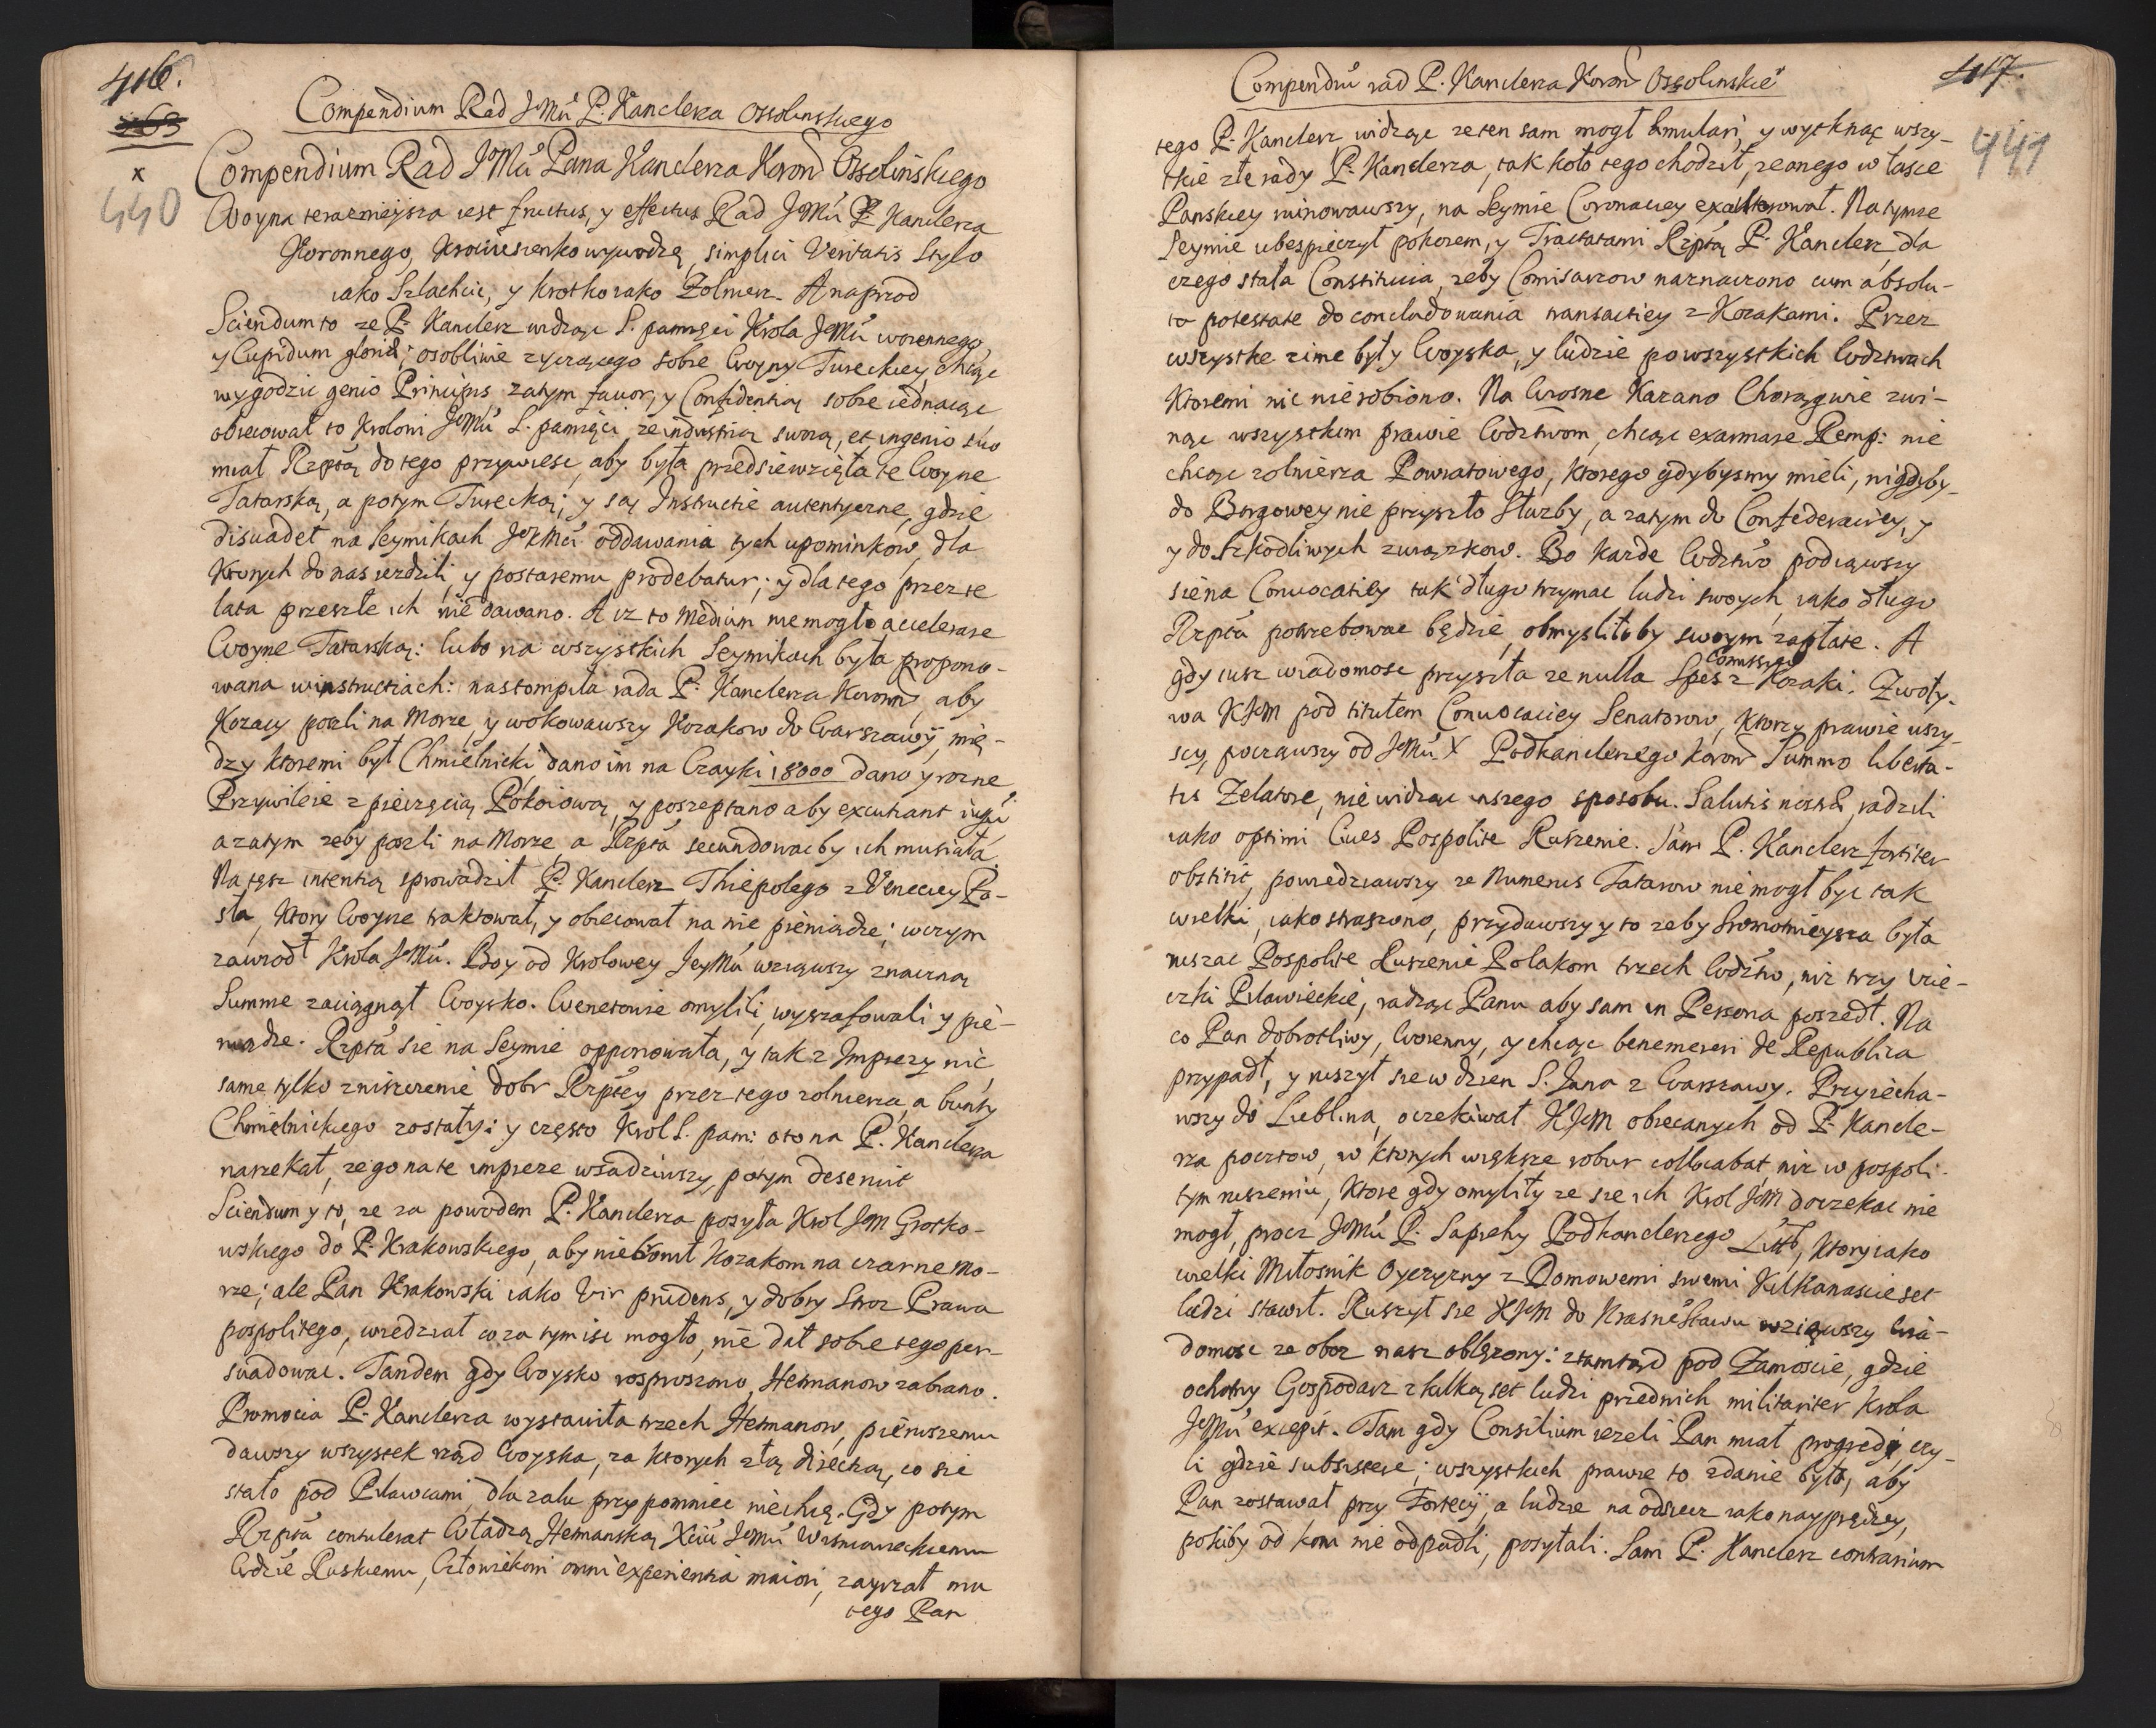 416.
x
440
Compendium Rad JeMci P. Kanclerza Ossolinskiego
Compendium Rad JeMci Pana Kanclerza Koron Ossolińskiego
Woyna teraznieysza iest fructus, y effectus Rad JeMci P. Kanclerza
Koronnego, Krociusienko wywodzę, simplici Veritatis Stylo
iako Szlachcic, y krotko iako Zolnierz. A naprzod
Sciendum to ze P. Kanclerz widząc S. pamięci Krola JeMci woiennego,
y Cupidum gloriæ; osobliwie zyczącego sobie Woyny Tureckiey, chcąc
wygodzic genio Principis zatym favor, y Confidentią sobie iednaiąc
obiecował to Krolowi JeMci S. pamięci, ze industrią swoią, et ingenio suo
miał Rzptą do tego przywiesc, aby była przedsiewzięła te Woyne
Tatarską, a potym Turecką; y są Instructie autentyczne, gdzie
disuadet na Seymikach JeKMci oddawania tych upominkow, dla
ktorych do nas iezdzili, y postaremu prodebatur; y dla tego przez te
lata przeszłe ich nie dawano. A iz to medium nie mogło accelerare
Woyne Tatarską: lubo na wszystkich Seymikach była propono-
wana w instructiach: nastompiła rada P. Kanclerza Koronn, aby
Kozacy poszli na Morze, y wokowawszy Kozakow do Warszawy, mię-
dzy ktoremi był Chmielnicki, dano im na Czayki 18000 dano y rozne
Przywileie z pieczęcią Pokoiową, y poszeptano aby excutiant iugu
a zatym zeby poszli na Morze, a Rzpta secundowac by ich musiała
Na tęsz intentią sprowadził P. Kanclerz Thiepolego z Veneciey Po-
sła, ktory Woyne traktował, y obiecował na nie pieniądze; w czym
zawiodł Krola JeMci. Boy od Krolowey JeyMci wziąwszy znaczną
Summe zaciągnął Woysko. Wenetowie omylili, wyszafowali y pie-
niądze. Rzpta sie na Seymie opponowała, y tak z Imprezy nic
same tylko zniszczenie dobr Rzptey przez tego zolnierza, a bunty
Chmielnickiego zostały: y często Krol S. pam: oto na P. Kanclerza
narzekał, ze go na te impreze wsadziwszy, potym deseruit
Sciendum y to, ze za powodem P. Kanclerza posyła Krol JeM Grotko-
wskiego do P. Krakowskiego, aby nie bronił Kozakom na czarne Mo-
rze; ale Pan Krakowski iako Vir prudens, y dobry Stroz Prawa
pospolitego, wiedział co za tym isc mogło, nie dał sobie tego per-
suadowac. Tandem gdy Woysko rosproszono, Hetmanow zabrano.
Promocia P. Kanclerza wystawiła trzech Hetmanow, pierwszemu
dawszy wszystek rząd Woyska, za ktorych złą direcką, co sie
stało pod Pilawcami, dla zalu przypomniec niechcę. Gdy potym
Rzpta contulerat Władzą Hetmanską Xciu JeMci Wisniowieckiemu
Wdzie Ruskiemu, Człowiekowi omni experientia maiori, zayrzał mu
tego Pan
417.
441
Compendiu rad P. Kanclerza Koron Ossolinskie
tego P. Kanclerz widząc ze ten sam mogł æmulari, y wytknąc wszy-
tkie złe rady P. Kanclerza, tak koło tego chodził, ze onego w łasce
Panskiey ruinowawszy, na Seymie Coronaciey exauthorował. Na tymze
Seymie ubespieczył pokoiem, y Tractatami Rzptą P. Kanclerz, dla
czego stała Constitucia, zeby Comisarzow naznaczono cum absolu-
ta potestate do concludowania transactiey z Kozakami. Przez
wszystke zime były Woyska, y ludzie po wszystkich Wodztwach
Ktoremi nic nie robiono. Na Wiosne Kazano Chorągwie zwi-
nąc wszystkim prawie Wodztwom, chcąc exarmare Remp: nie
chcąc zolnierza Powiatowego, ktorego gdybysmy mieli, nigdyby
do Borgowey nie przyszło Służby, a zatym do Confederaciey, y
y do szkodliwych związkow. Bo kazde Wodztwo podiąwszy
sie na Convocatiey tak długo trzymac ludzi swoych, iako długo
Rzpta potrzebowac będzie, obmysliłoby swoym zapłate. A
gdy iusz wiadomosc przyszła ze nulla Spes Comissyi z Kozaki. Zwoły-
wa KJeM pod titulem Convocaciey Senatorow, ktorzy prawie wszy-
scy, począwszy od JeMci X Podkanclerzego Koron Summo liberta-
tis Zelatore, nie widząc inszego sposobu Salutis nostræ, radzili
iako optimi Cives Pospolite Ruszenie. Sam P. Kanclerz fortiter
obstitit, powiedziawszy ze Numerus Tatarow nie mogł byc tak
wielki, iako straszono, przydawszy y to zeby sromotnieysza była
ruszac Pospolite Ruszenie Polakom trzech Wodztw, niz trzy Ucie-
czki Pilawieckie, radząc Panu aby sam in Persona poszedł. Na
co Pan dobrotliwy, Woienny, y chcąc benemereri de Republica
przypadł, y ruszył sie w dzien S. Jana z Warszawy. Przyiecha-
wszy do Lublina, oczekiwał KJeM obiecanych od P. Kancle-
rza pocztow, w ktorych większe robur collocabat, niz w pospoli-
tym ruszeniu, ktore gdy omyliły ze sie ich Krol JeM doczekac nie
mogł, procz JeMci P. Sapiehy Podkanclerzego Litt, ktory iako
wielki Miłosnik Oyczyzny z Domowemi swemi Kilkanascie set
ludzi stawił. Ruszył sie KJeM do Krasnegostawu wziąwszy wia-
domosc ze oboz nasz oblężony: ztamtąd pod Zamoscie, gdzie
ochotny Gospodarz z kilką set ludzi przednich militariter Krola
JeMci excepit. Tam gdy Consilium iezeli Pan miał progredi, czy-
li gdzie subsistere; wszystkich prawie to zdanie było, aby
Pan zostawał przy Fortecy, a ludzie na odsiecz iako nayprędzey,
pokiby od konia nie odpadli, posyłali. Sam P. Kanclerz contrarium